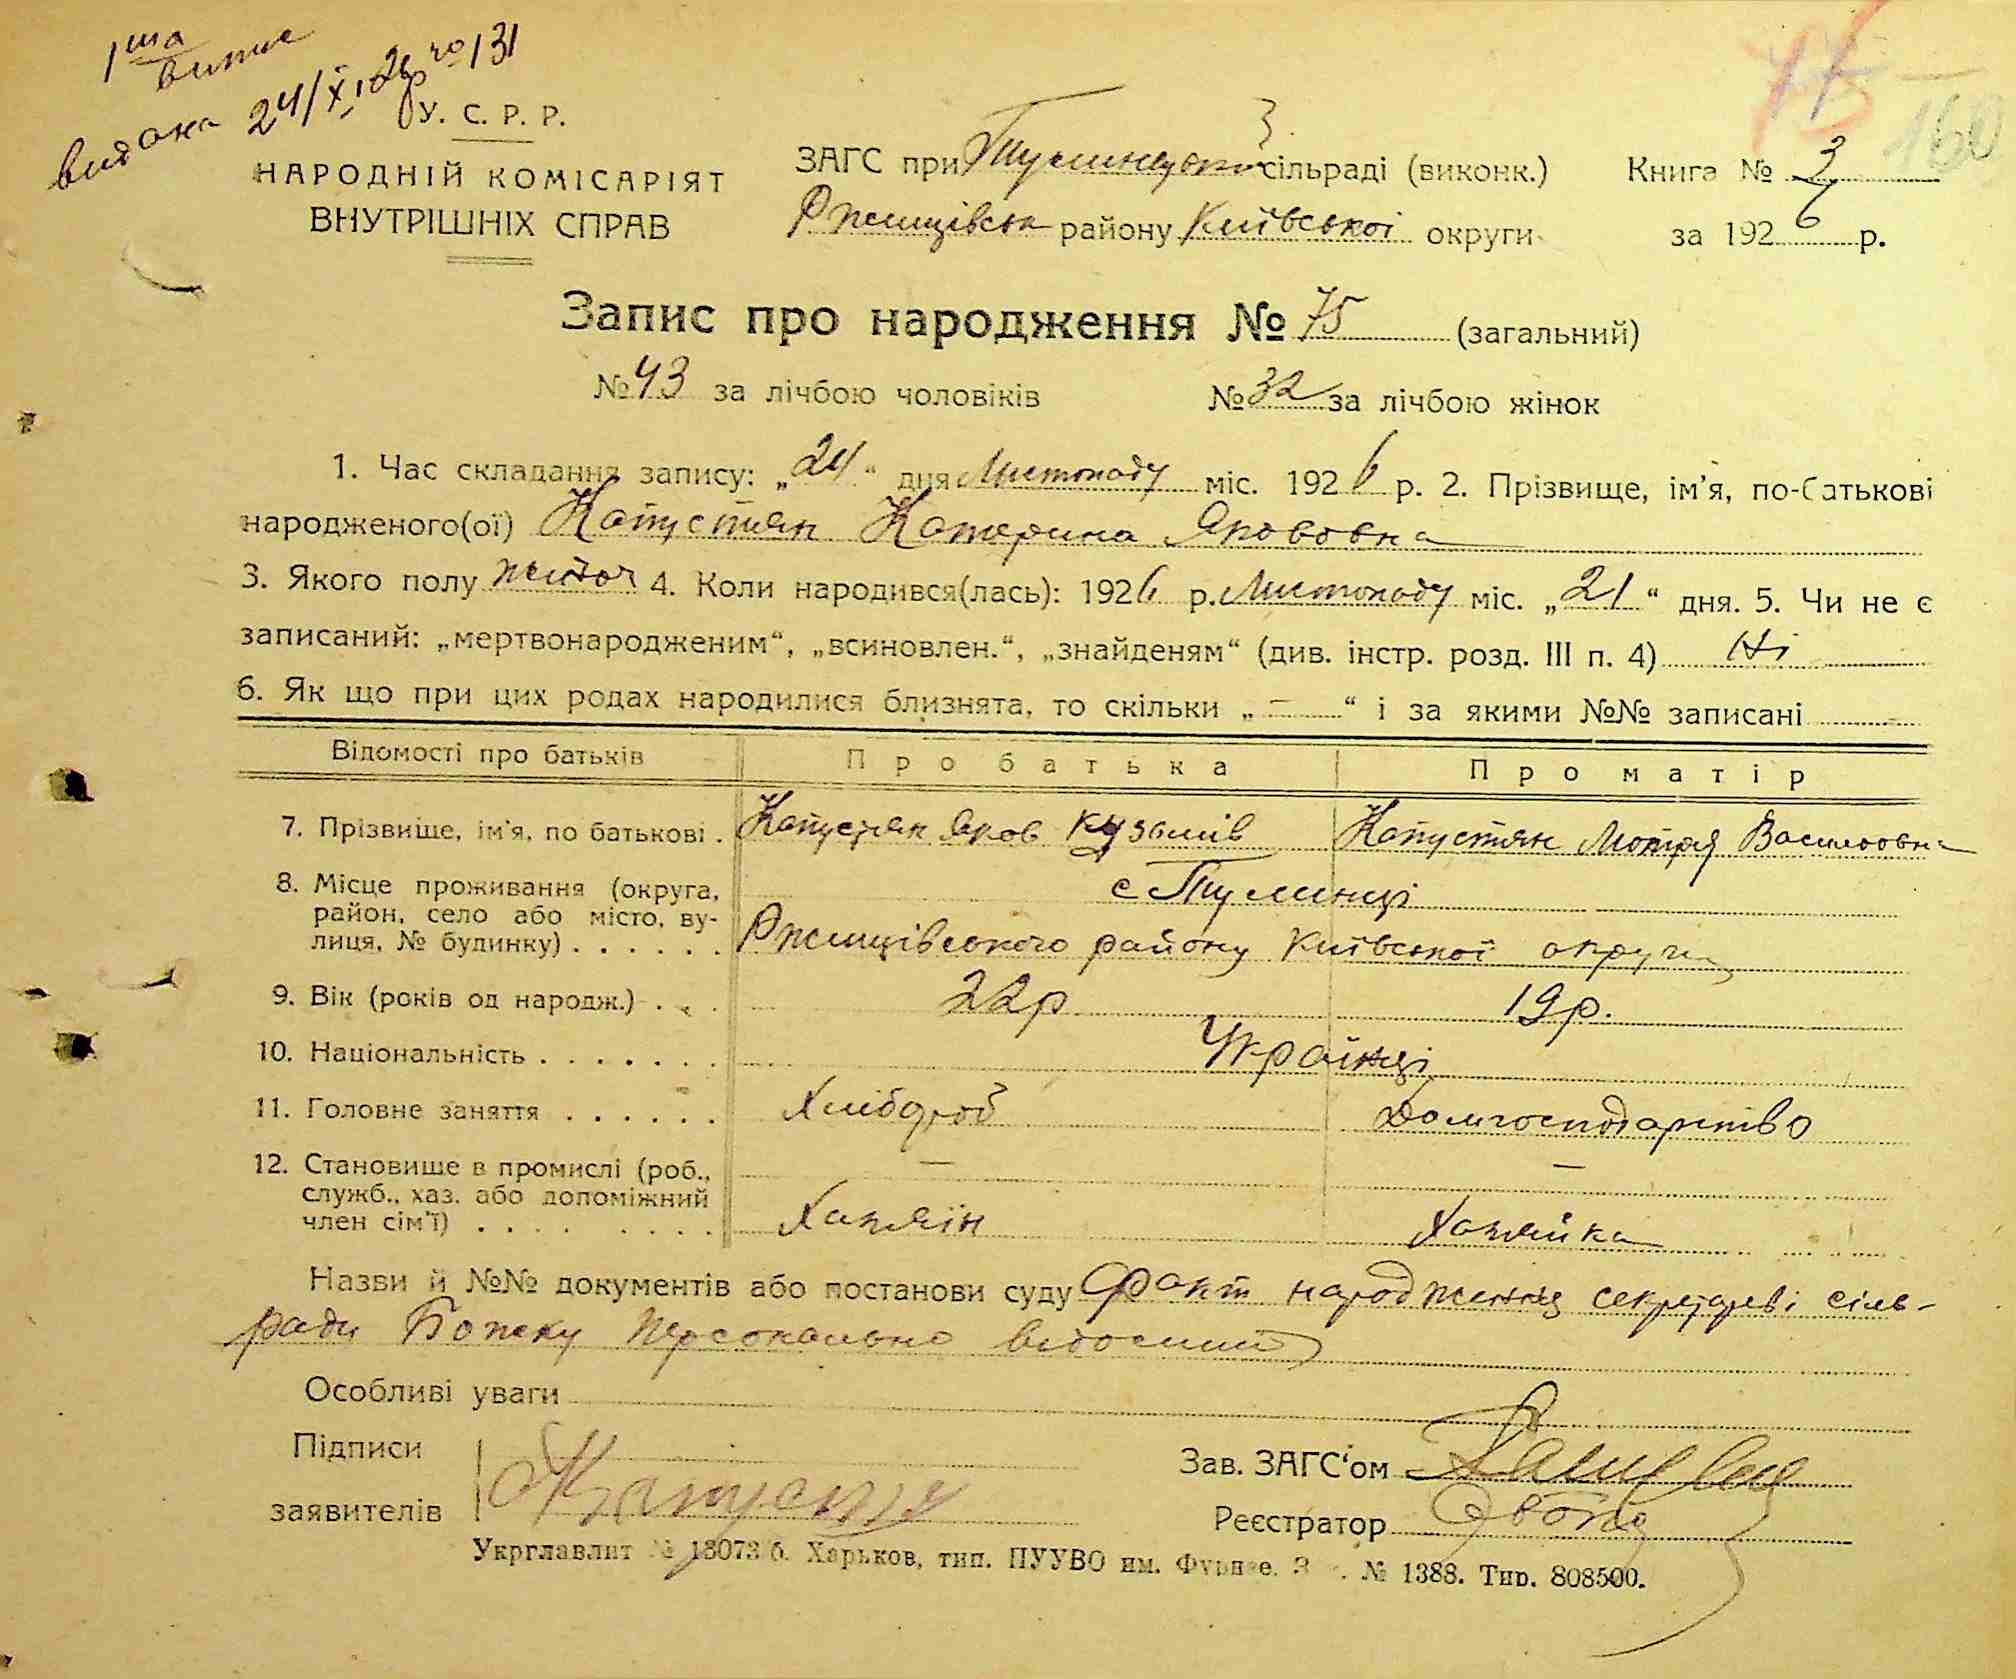 1ша випис
видана 24/XI.26р. no 131
75
160
У. С. Р. Р.
НАРОДНІЙ КОМІСАРІЯТ
ВНУТРІШНІХ СПРАВ
ЗАГС при Тулинецькій сільраді (виконк.)
Ржищівськ району Київської округи
Книга № 3
за 1926 р.
Запис про народження № 75 (загальний)
№ 43 за лічбою чоловіків № 32 за лічбою жінок
1. Час складання запису: „24“ дня Листопаду міс. 1926 р. 2. Прізвище, ім'я, по-батькові
народженого(ої) Капустян Катерина Якововна
3. Якого полу жіноч 4. Коли народився(лась): 1926 р. Листопаду міс. „21“ дня. 5. Чи не є
записаний: „мертвонародженим“, „всиновлен.“, „знайденям“ (див. інстр. розд. III п. 4) Ні
6. Як що при цих родах народилися близнята, то скільки „ — “ і за якими №№ записані —
Відомості про батьків Про батька Про матір
7. Прізвище, ім'я, по батькові . Капустян Яков Кузьмів Капустян Мотря Василовна
8. Місце проживання (округа, район, село або місто, вулиця, № будинку) . . . . . . с Тулинці
Ржищівського району Київської округи
9. Вік (років од народж.) . . . 22р 19р.
10. Національність . . . . . . . Українці
11. Головне заняття . . . . . . Хлібороб Домгосподарство
12. Становище в промислі (роб., — —
служб., хаз. або допоміжний
член сім'ї) . . . . . . . . Хазяїн Хазяйка
Назви й №№ документів або постанови суду Факт народження секретареві сіль-
ради персонально відомий
Особливі уваги
Підписи
заявителів Капустян
Зав. ЗАГС'ом
Реєстратор
Укрглавлит № 13073 б. Харьков, тип. ПУУВО им. Фрунзе. З . № 1388. Тир. 808500.